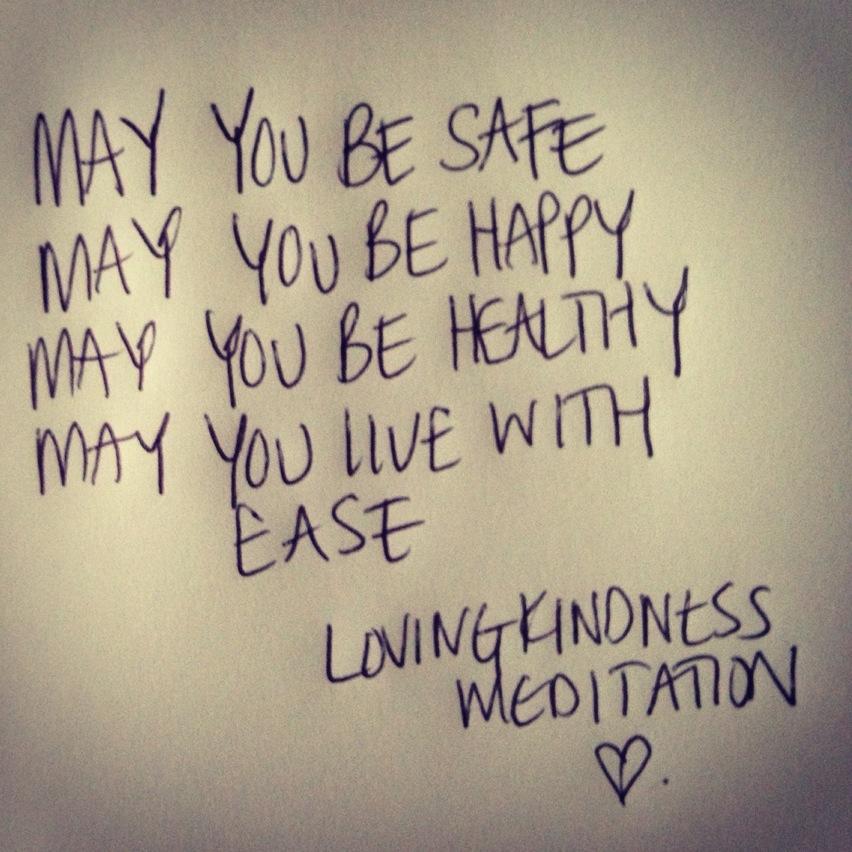 MAY YOU BE SAFE
MAY YOU BE HAPPY
MAY YOU BE HEALTHY
MAY YOU LIVE WITH
EASE
LOVINGKINDNESS
MEDITATION
♡.